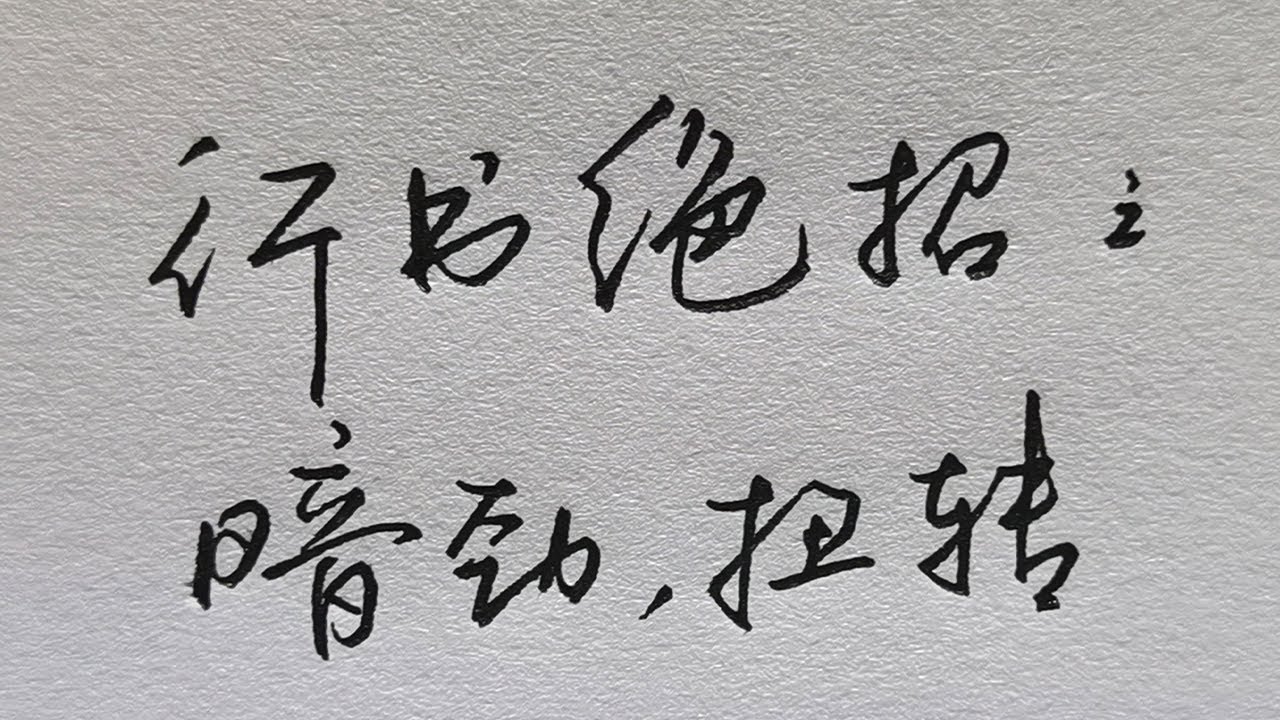 行书绝招之
暗劲,扭转